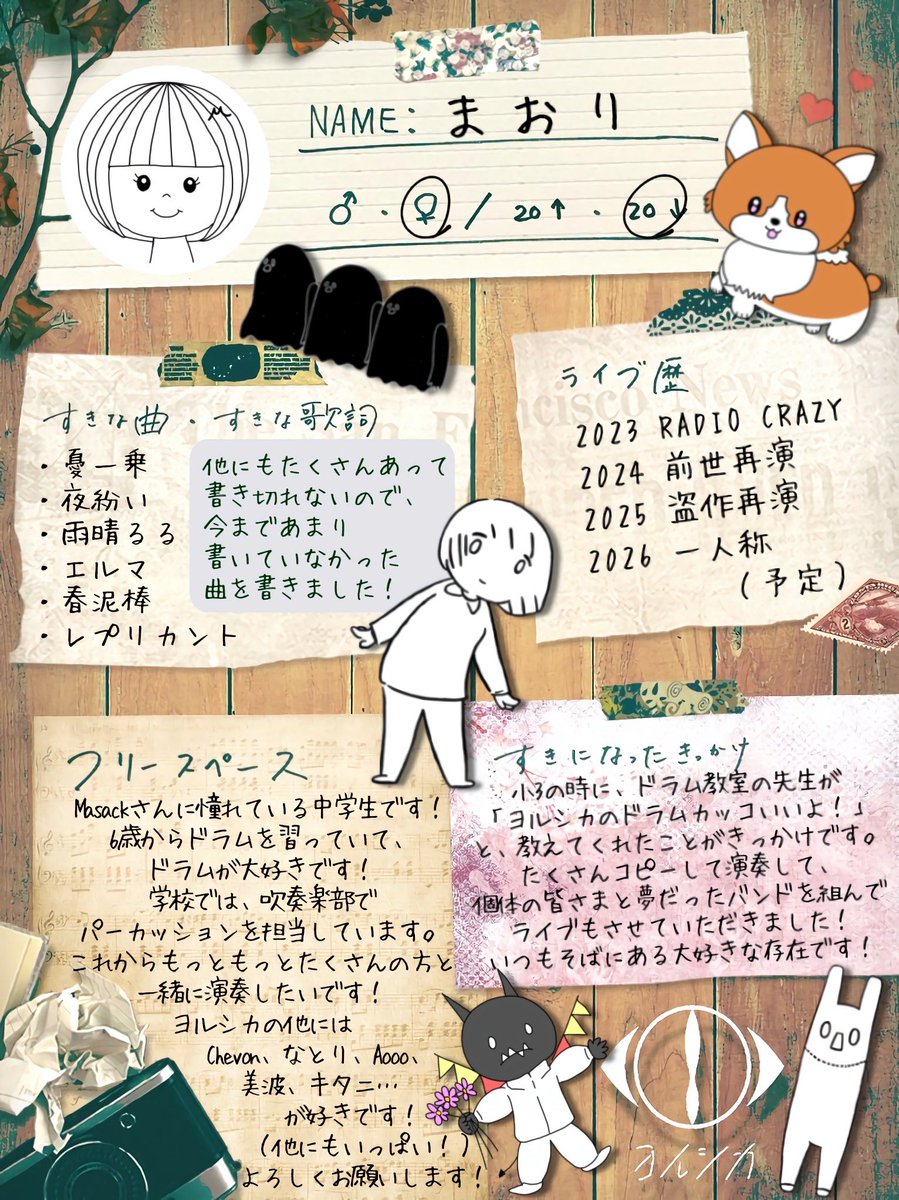 NAME: まおり
♂・♀ / 20↑・20↓
すきな曲・すきな歌詞
・憂一乗
・夜紛い
・雨晴るる
・エルマ
・春泥棒
・レプリカント
他にもたくさんあって
書き切れないので、
今まであまり
書いていなかった
曲を書きました！
ライブ歴
2023 RADIO CRAZY
2024 前世再演
2025 盗作再演
2026 一人称
（予定）
フリースペース
Masackさんに憧れている中学生です！
6歳からドラムを習っていて、
ドラムが大好きです！
学校では、吹奏楽部で
パーカッションを担当しています。
これからもっともっとたくさんの方と
一緒に演奏したいです！
ヨルシカの他には
Chevon、なとり、Aooo、
美波、キタニ…
が好きです！
（他にもいっぱい！）
よろしくお願いします！
すきになったきっかけ
小3の時に、ドラム教室の先生が
「ヨルシカのドラムカッコいいよ！」
と、教えてくれたことがきっかけです。
たくさんコピーして演奏して、
個体の皆さまと夢だったバンドを組んで
ライブもさせていただきました！
いつもそばにある大好きな存在です！
ヨルシカ